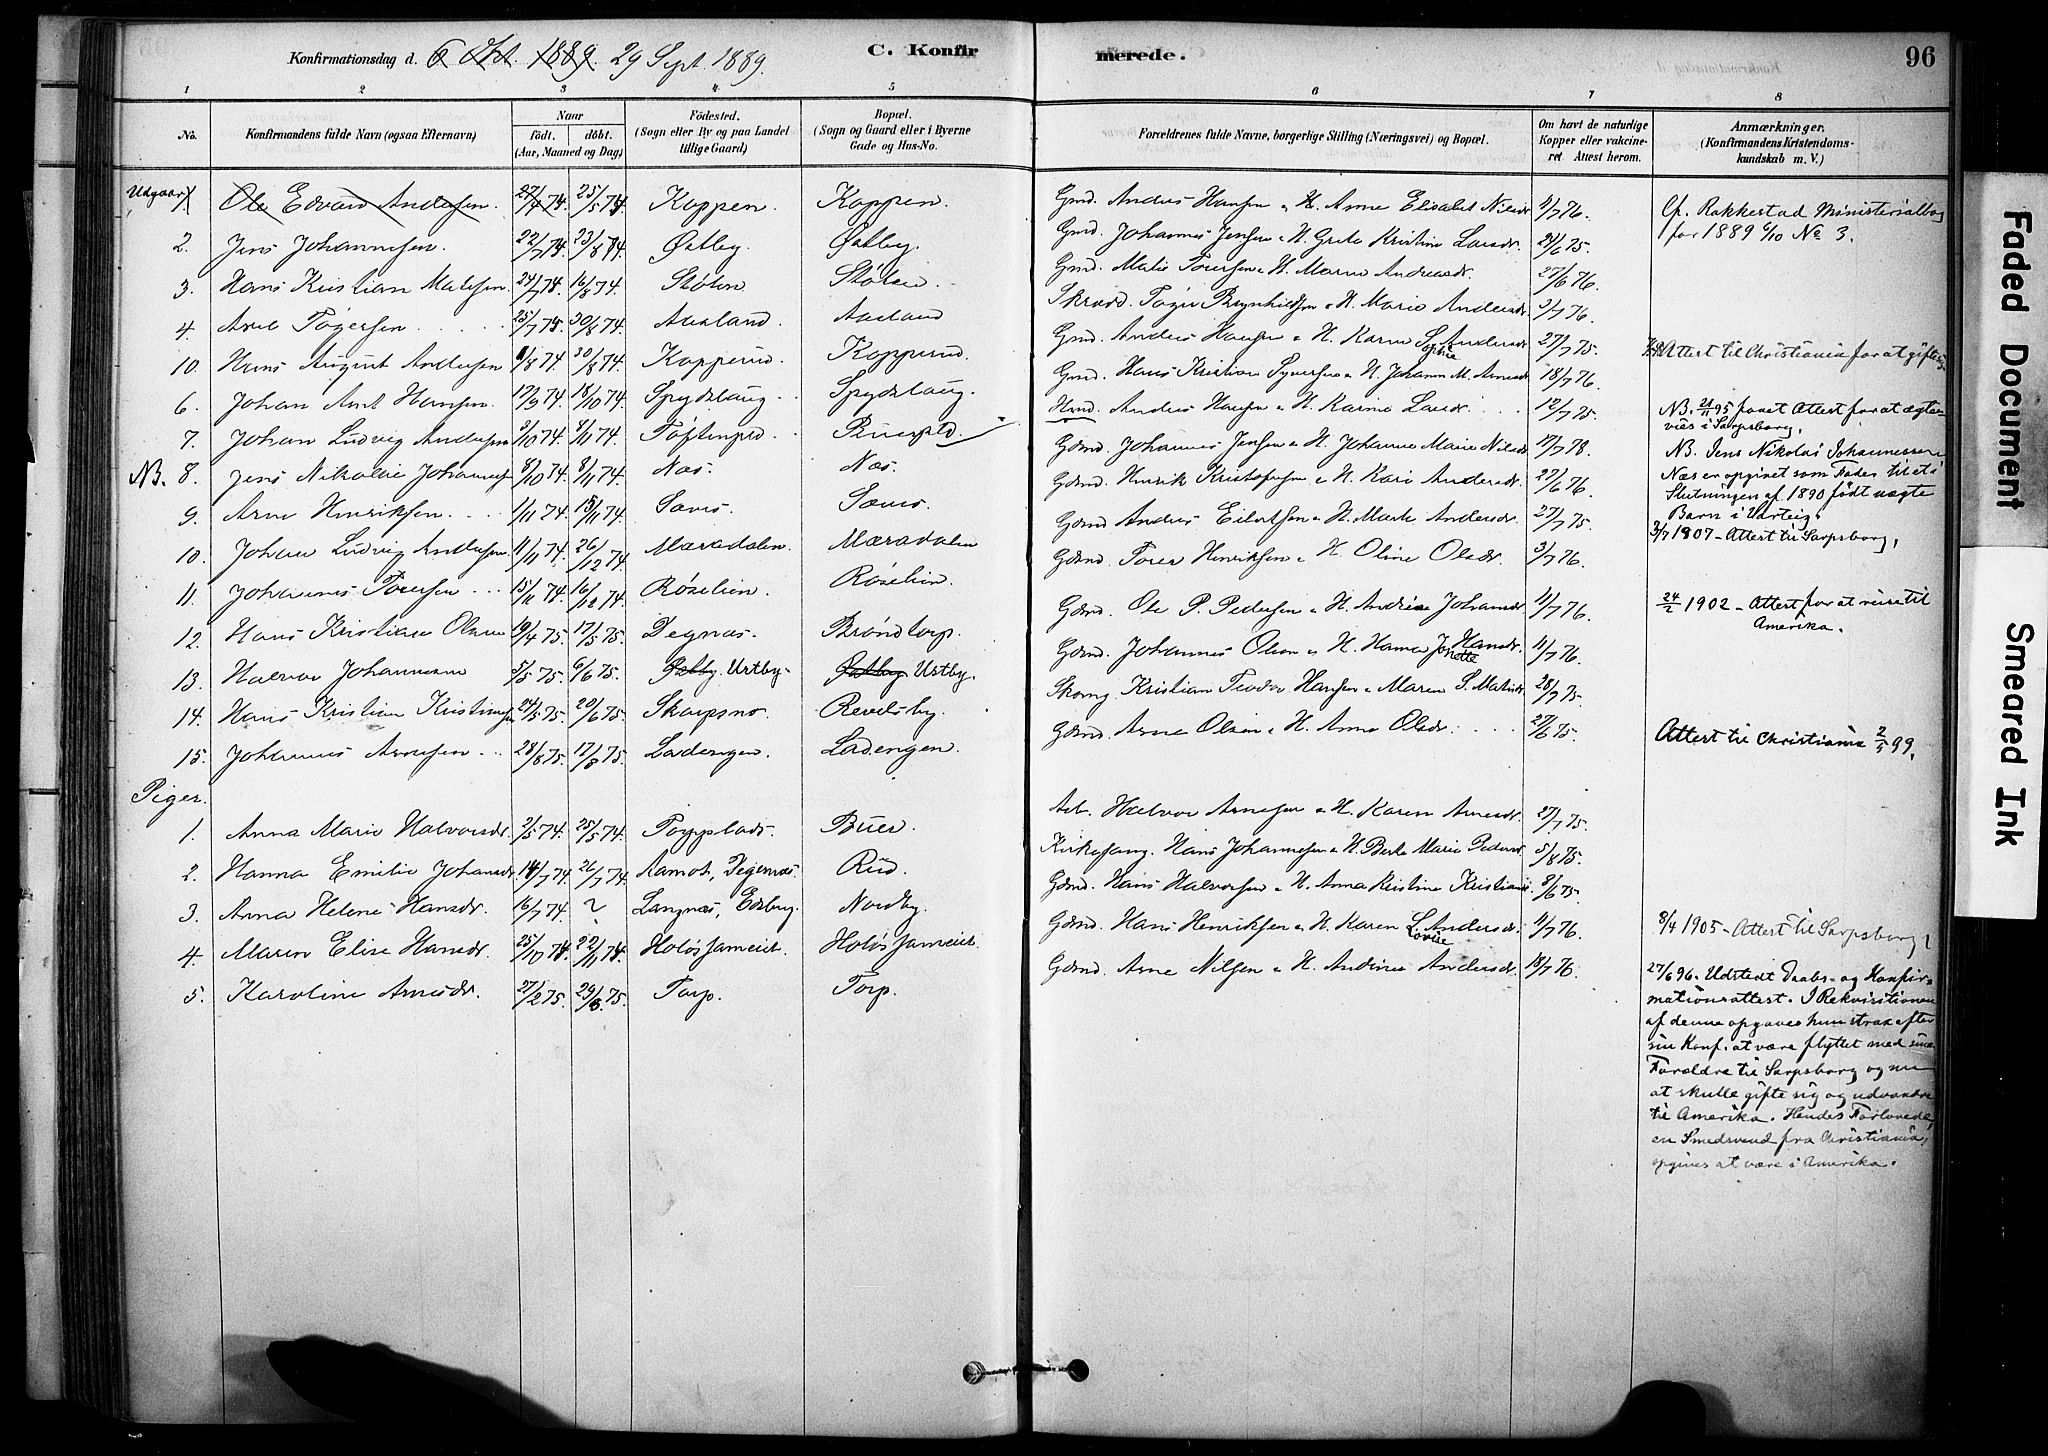 Konfirmationsdag d. 6 Okt. 1889. 29 Sept. 1889.
C. Konfir
merede.
96
1 2 3 4 5 6 7 8
No.
Konfirmandens fulde Navn (ogsaa Efternavn)
Naar
født. døbt.
(Aar, Maaned og Dag)
Fødested.
(Sogn eller By og paa Landet
tillige Gaard)
Bopæl.
(Sogn og Gaard eller i Byerne
Gade og Hus-No.
Forældrenes fulde Navne, borgerlige Stilling (Næringsvei) og Bopæl.
Om havt de naturlige
Kopper eller vakcine-
ret Attest herom.
Anmærkninger.
(Konfirmandens Kristendoms-
kundskab m. V.)
Udgaar 1 Ole Edvard Andersen. 27/4 74. 25/5 74 Koppen. Koppen. Gmd. Andreas Hansen o H. Anne Elisabet Nilsdr 11/7 76. Cf. Rakkestad Ministerialbog
for 1889 6/10 No 3.
2. Jens Johannesen. 22/7 74. 23/8 74. Østby. Østby. Gmd. Johannes Jensen o H. Grete Kristine Larsdr. 24/6 75.
3. Hans Kristian Matisen 24/7 74 16/8 74 Støten Støten Gmd. Matis Toresen o H. Maren Andreasdr. 27/6 76.
4. Axel Tøgersen 25/7 74 30/8 74. Aasland. Aasland Skræd. Tøger Brynhildsen o H. Marie Andersdr 3/7 76.
10. Hans August Andersen 1/8 74 30/8 74. Kopperud. Kopperud. Gmd. Anders Hansen o H. Karen Sofie Andersdr 27/7 75. Attest til Christiania for at gifte sig
6. Johan Ant Hansen. 17/9 74 18/10 74. Spydslaug. Spydslaug. Gmd. Hans Kristian Syversen o H. Johanne M. Arnesdr 18/7 76.
7. Johan Ludvig Andersen 3/10 74. 8/11 74. Hmd. Anders Hansen o H. Karine Larsdr. 12/7 75. NB. 21/11 95 faaet Attest for at ægte-
vies i Sarpsborg.
NB. 8. Jens Nikolai Johannesen 8/10 74 8/11 74. Næs. Næs. Gdmd. Johannes Jensen o H. Johanne Marie Nilsdr 17/7 78. NB. Jens Nikolai Johannessen
Næs er opgivet som Fader til et i
Slutningen af 1890 født uægte
Barn i Varteig.
9. Arne Henriksen. 1/11 74 15/11 74. Gdmd. Henrik Kristofersen o H. Kari Andersdr. 27/6 76.
10. Johan Ludvig Andersen 11/11 74. 26/12 74 Mæradalen. Mæradalen Gdmd Anders Eilertsen o H. Marte Andersdr. 27/7 75. 3/7 1907 - Attest til Sarpsborg.
11. Johannes Toresen 15/11 74. 16/12 74. Røselien. Røselien. Gdmd. Tores Henriksen o H. Oline Olsdr. 3/7 76.
12. Hans Kristian Olsen 19/4 75 17/5 75. Degnæs. Brøndtorp. Gdmd. Ole P. Pedersen o H. Andrine Johansdr 11/7 76. 24/2 1902 - Attest for at reise til
Amerika.
13. Halvor Johannesen 3/5 75. 6/6 75. Østby. Ustby. Østby Ustby. Gdmd. Johannes Olsen o H. Hanna Jonette Hansdr. 11/7 76.
14. Hans Kristian Kristiansen 24/5 75. 20/6 75. Skarpsno. Revelsby. Skomg Kristian Teodor Hansen o Maren S. Matisdr 28/7 75.
15. Johannes Arnesen 28/6 75. 17/8 75. Ladengen. Ladengen. Gdmd. Arne Olsen o H. Anne Olsdr. 27/6 75. Attest til Christiania 2/5 99.
Piger.
1. Anna Marie Halvorsdr. 2/5 74. 25/5 74. Buer. Arb. Halvor Arnesen o H. Karen Arnesdr. 27/7 75.
2. Hanna Emilie Johansdr 14/7 74. 26/7 74. Aamot, Degernes. Rud. Kirkesang. Hans Johannesen o H. Berte Marie Pedersdr. 5/8 75.
3. Anna Helene Hansdr. 16/7 74. ? Langnæs, Edsberg. Nordby. Gdmd. Hans Halvorsen o H. Anna Kristine Kristians. 8/6 75.
4. Maren Elise Hansdr. 25/10 74. 22/11 74. Holøs Jameiet. Holøs Jameiet. Gdmd. Hans Henriksen o H. Karen Lovise Andersdr. 11/7 76. 8/4 1905 - Attest til Sarpsborg
5. Karoline Arnesdr. 27/2 75. 29/3 75. Torp. Torp. Gdmd. Arne Nilsen o H. Andrine Andersdr. 18/7 76. 27/6 96. Udstedt Daabs- og Konfir-
mationsattest. I Rekvisitionen
af denne opgaves hun strax efter
sin Konf. at være flyttet med sine
Forældre til Sarpsborg og nu
at skulle gifte sig og udvandre
til Amerika. Hendes Forlovede,
en Smedsvend fra Christiania,
opgives at være i Amerika.
Faded Document
Smeared Ink